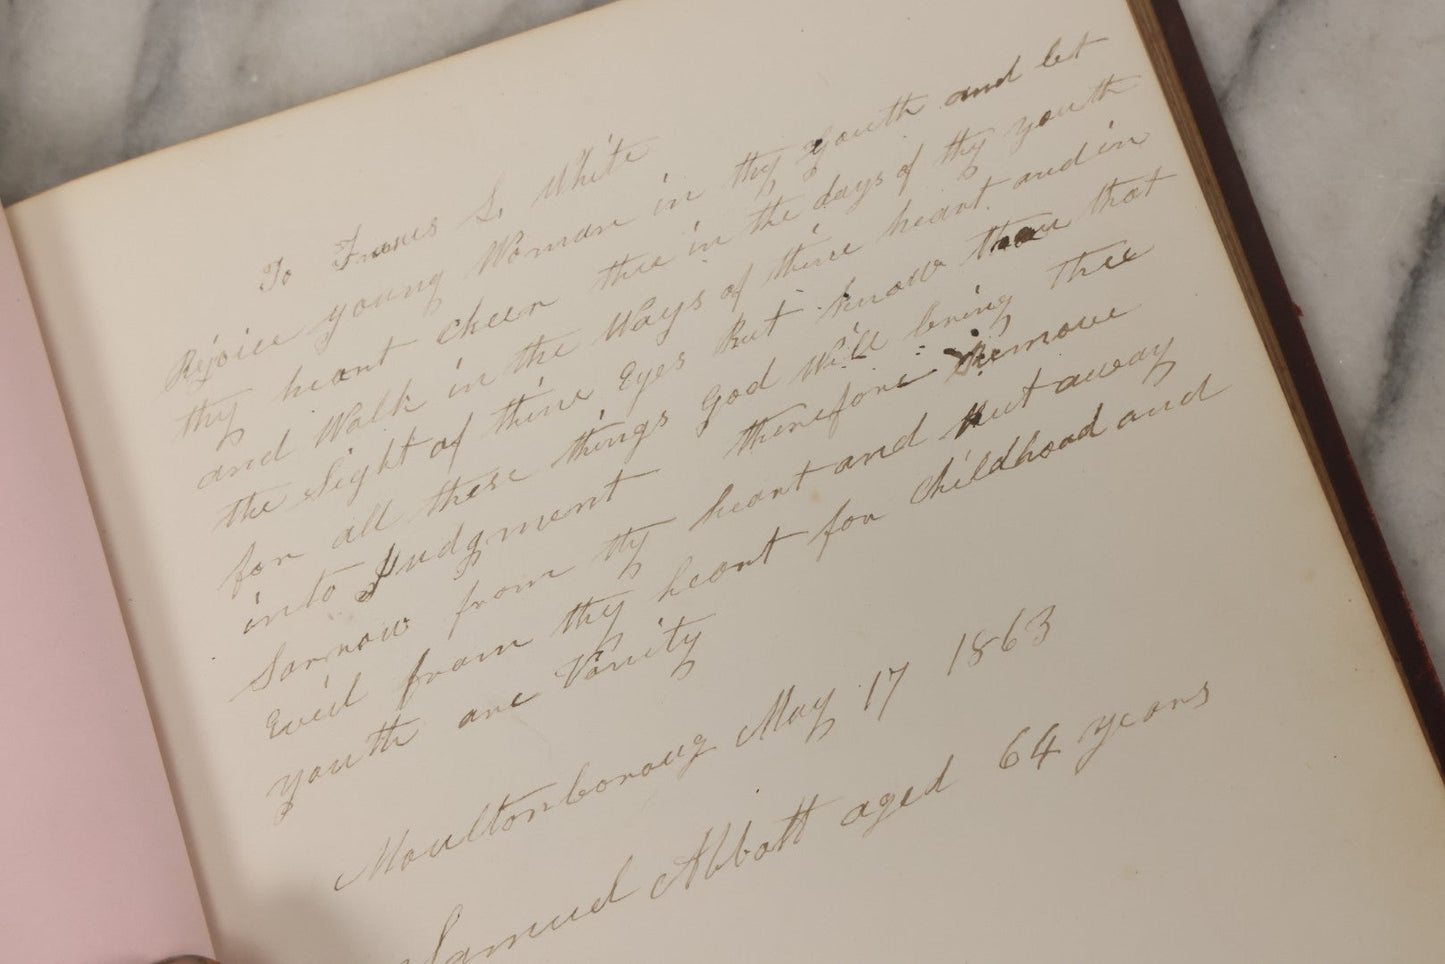 To Frances S. White
Rejoice young Woman in thy Youth and let
thy heart cheer thee in the days of thy youth
and Walk in the Ways of thine heart and in
the Sight of thine Eyes But know thou that
for all these things God Will bring thee
into Judgment therefore Remove
Sorrow from thy heart and put away
Evil from thy heart for Childhood and
youth are Vanity
Moultonboroug May 17 1863
Samuel Abbott aged 64 years